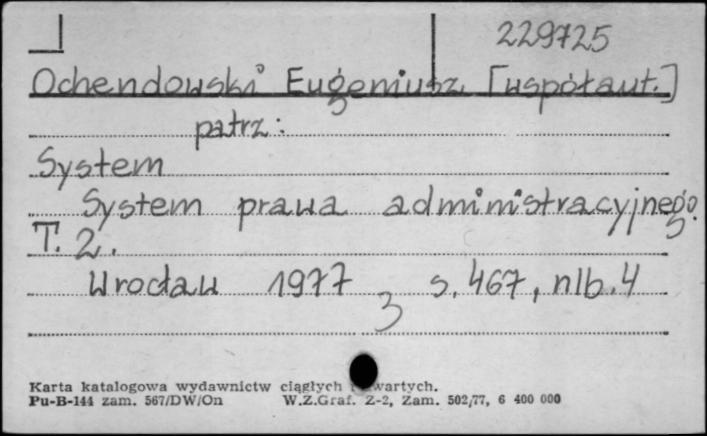 229725
Ochendowski Eugeniusz [współaut.]
patrz:
System
System prawa administracyjnego.
T. 2.
Wrocław 1977 s. 467, nlb. 4
3
Karta katalogowa wydawnictw ciągłych i zwartych.
Pu-B-144 zam. 567/DW/On W.Z.Graf. Z-2, Zam. 502/77, 6 400 000